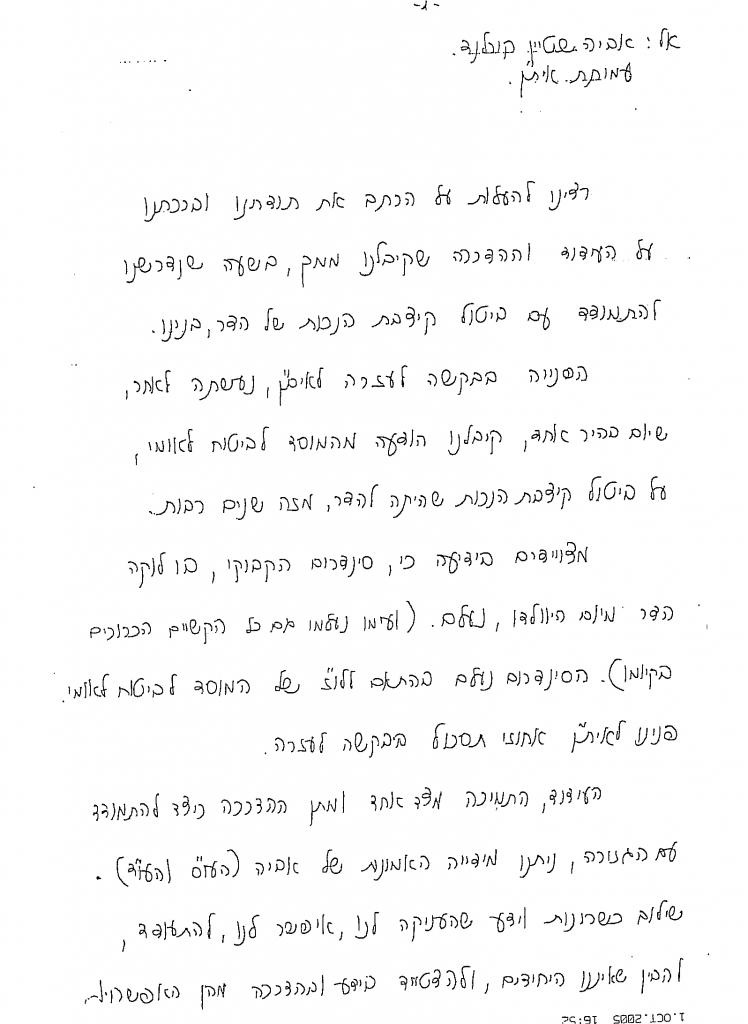 -1-
אל: אביה שטיין קופלנד.
עמותת איתן.
רצינו להעלות על הכתב את תודתנו וברכתנו
על העידוד וההדרכה שקיבלנו ממך, בשעה שנדרשנו
להתמודד עם ביטול קיצבת הנכות של הדר, בנינו.
הפנייה בבקשה לעזרה לאית"ן, נעשתה לאחר,
שיום בהיר אחד, קיבלנו הודעה מהמוסד לביטוח לאומי,
על ביטול קיצבת הנכות שהיתה להדר, מזה שנים רבות.
מצויידים בידיעה כי, סינדרום הקבוקי, בו לוקה
הדר מיום היוולדו, נעלם. (ועימו נעלמו גם כל הקשיים הכרוכים
בקיומו). הסינדרום נעלם בהתאם ללו"ז של המוסד לביטוח לאומי.
פנינו לאית"ן אחוזי תסכול בבקשה לעזרה.
העידוד, התמיכה מצד אחד ומתן ההדרכה כיצד להתמודד
עם הגזורה, ניתנו מידייה האמונות של אביה (העו"ס והעו"ד).
שילוב כשרונות וידע שהעניקה לנו, איפשר לנו, להתעודד,
להבין שאיננו היחידים, ולהצטייד בידע ובהדרכה מהן האפשרויות
1.OCT.2005 16:52